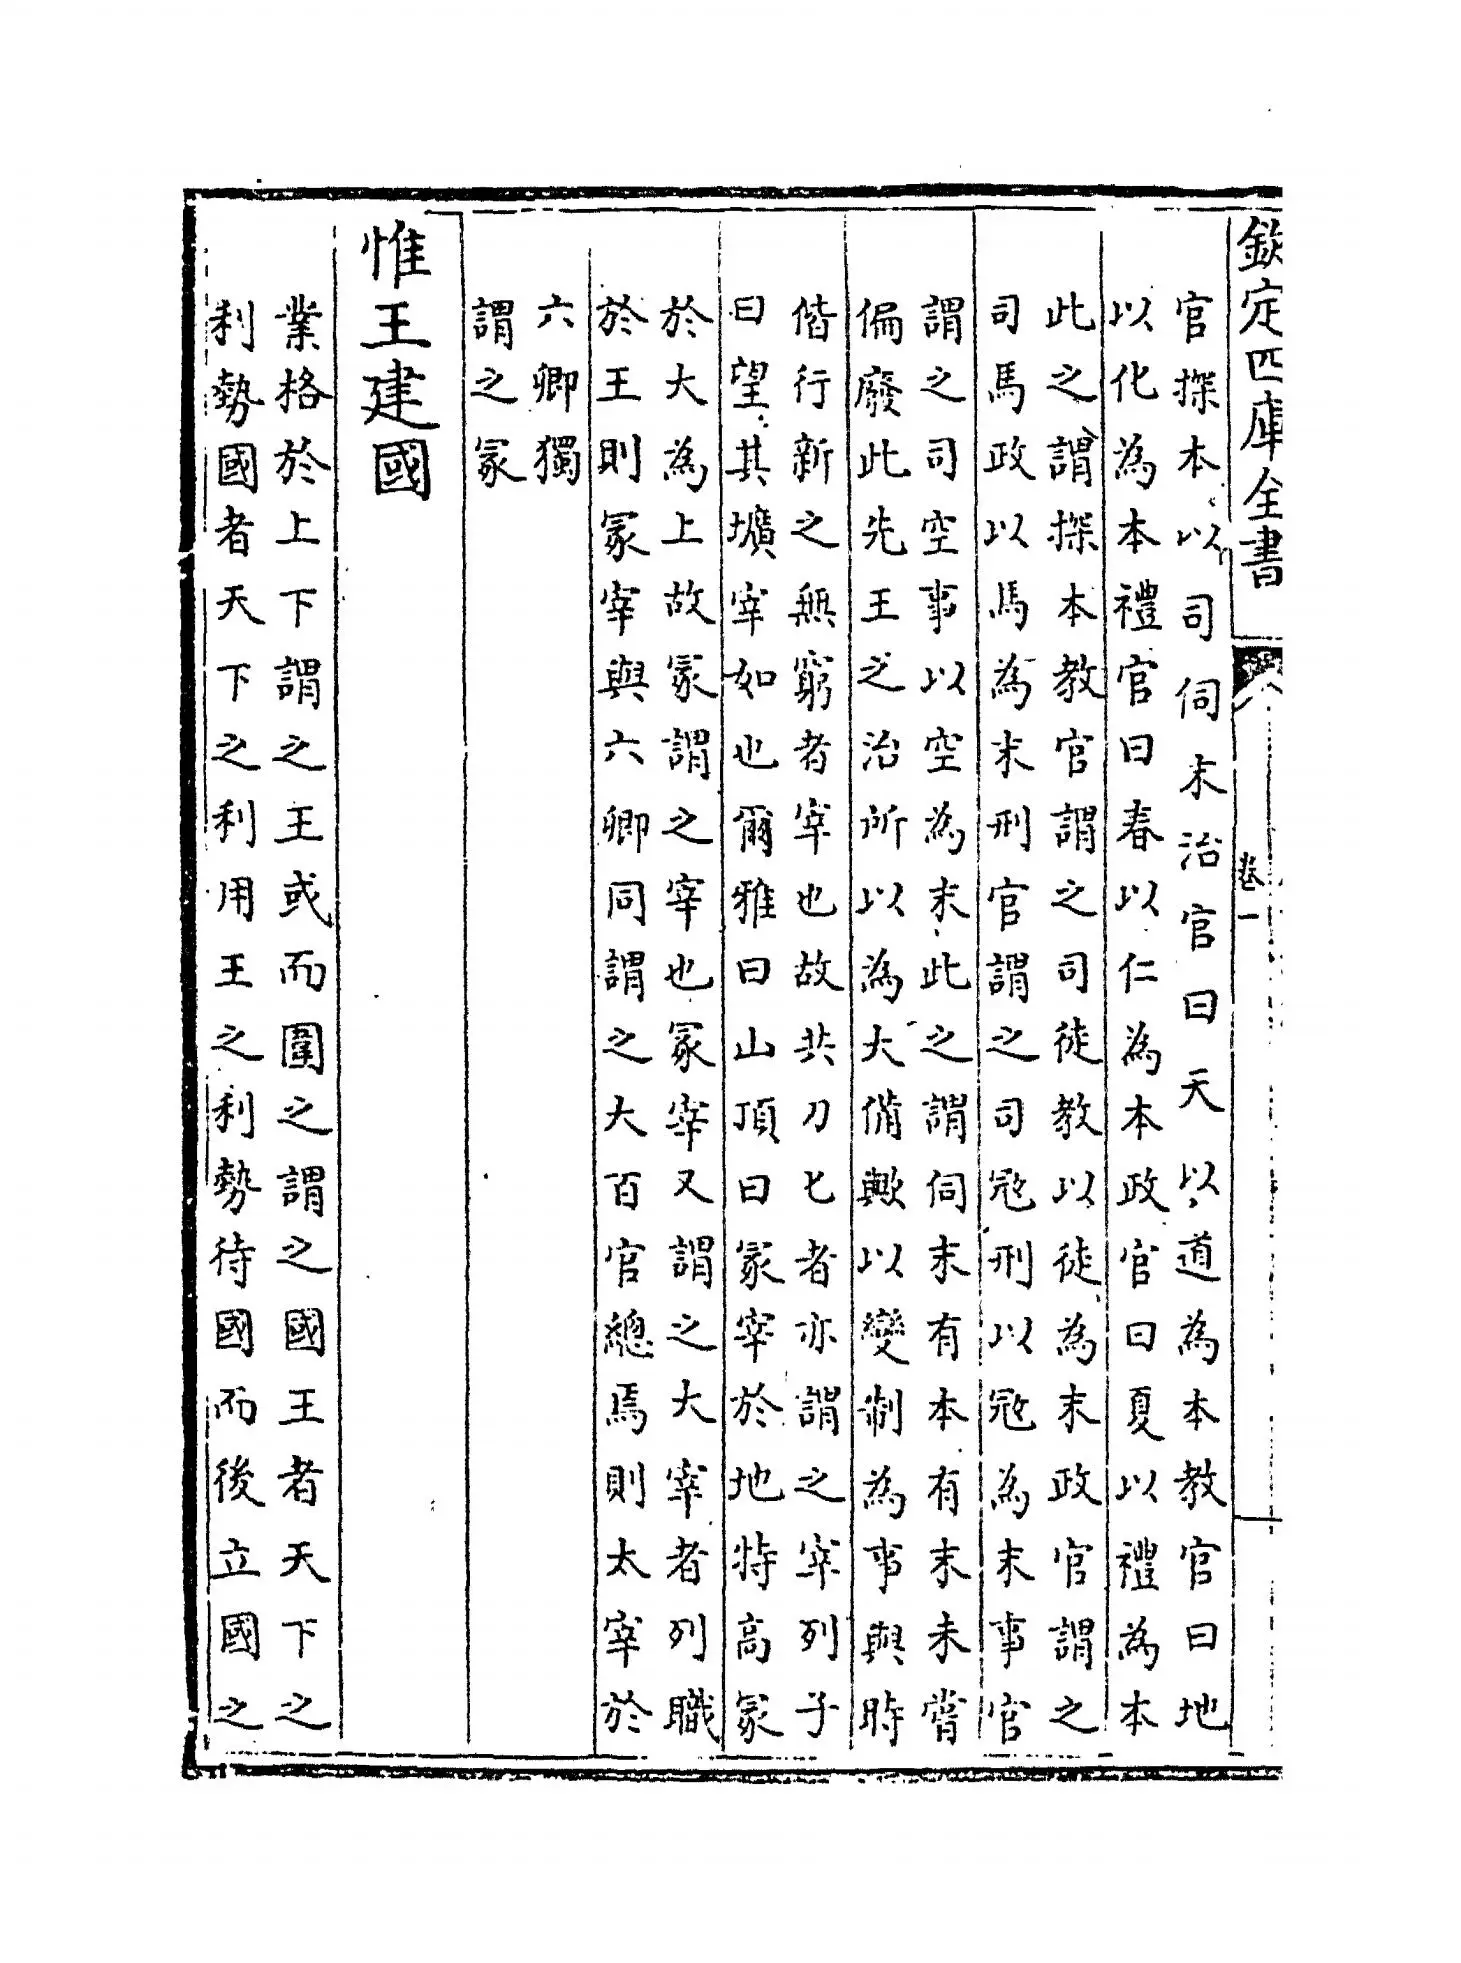 欽定四庫全書
卷一
官探本以司伺末治官曰天以道為本教官曰地
以化為本禮官曰春以仁為本政官曰夏以禮為本
此之謂探本教官謂之司徒教以徒為末政官謂之
司馬政以馬為末刑官謂之司冦刑以冦為末事官
謂之司空事以空為末此之謂伺末有本有末未嘗
偏廢此先王之治所以為大備歟以變制為事與時
偕行新之無窮者宰也故共刀匕者亦謂之宰列子
曰望其壙宰如也爾雅曰山頂曰冡宰於地特高冡
於大為上故冡謂之宰也冡宰又謂之大宰者列職
於王則冡宰與六卿同謂之大百官總焉則太宰於
六卿獨
謂之冡
惟王建國
業格於上下謂之王或而圍之謂之國王者天下之
利勢國者天下之利用王之利勢待國而後立國之